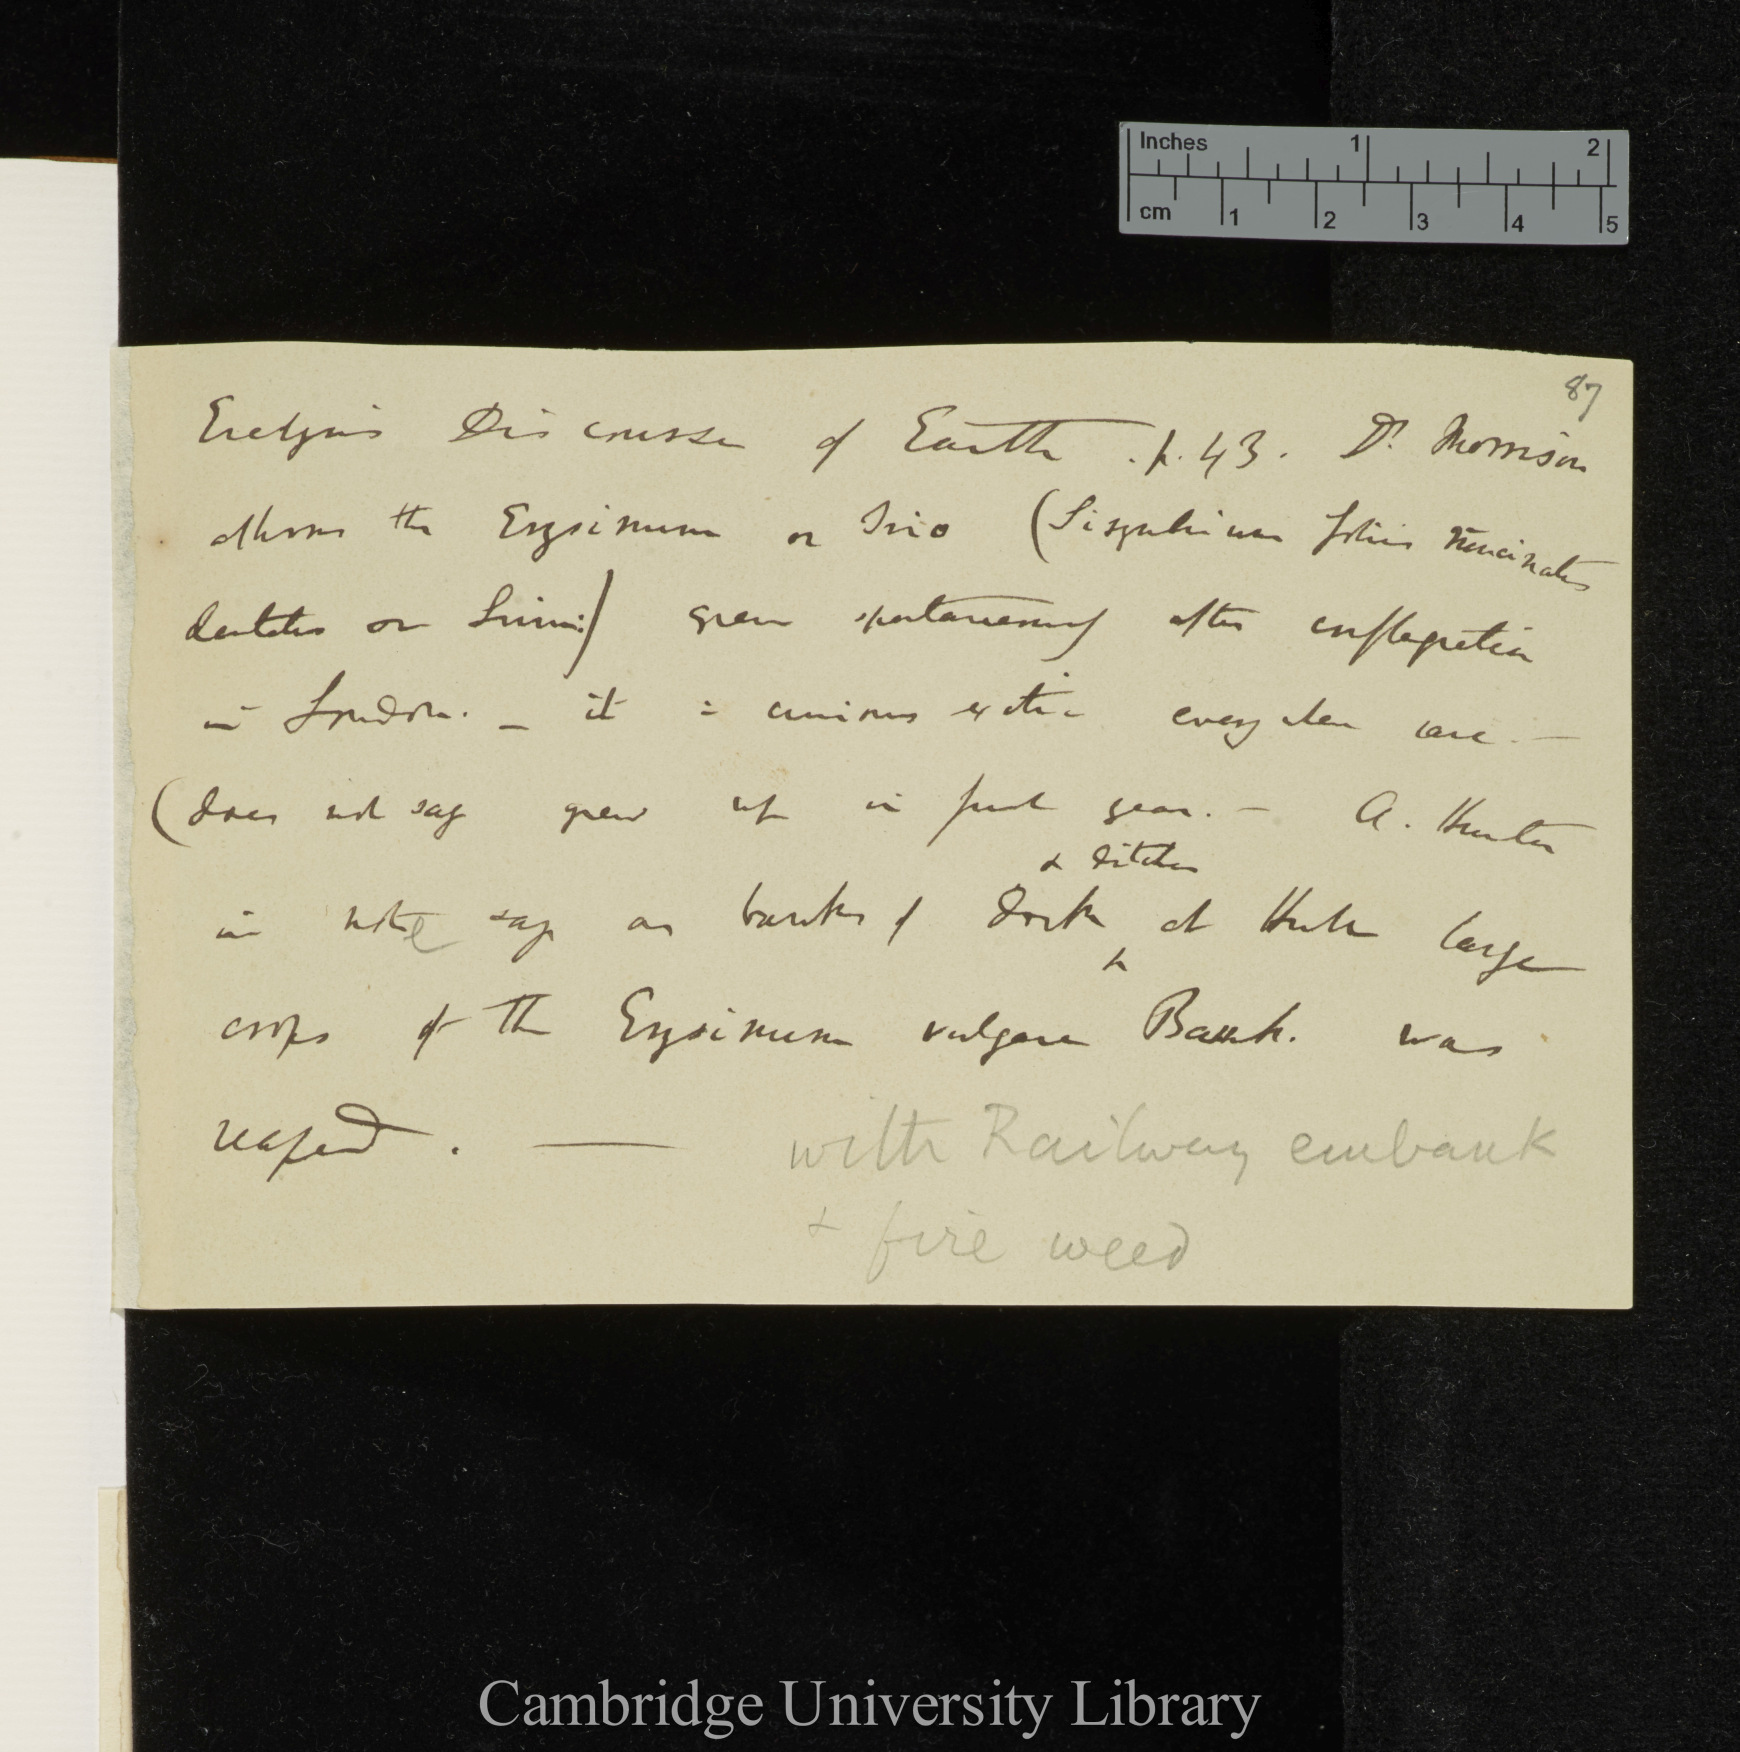 Inches 1 2
cm 1 2 3 4 5
87
Evelyn's Discourse of Earth. p. 43. Dr. Morrison
shows the Erysimum or Irio (Sisymbrium foliis runcinatis
dentatis or Linn:) grew spontaneously after conflagration
in London. — it is curious exotic every where case. —
(does not say grew up in first year. — A. Hunter
& ditches
in note says on banks of Dock ^ at Hull large
crops of the Erysimum vulgare Bauh. was
reaped. —— with Railway embank
& fire weed
Cambridge University Library